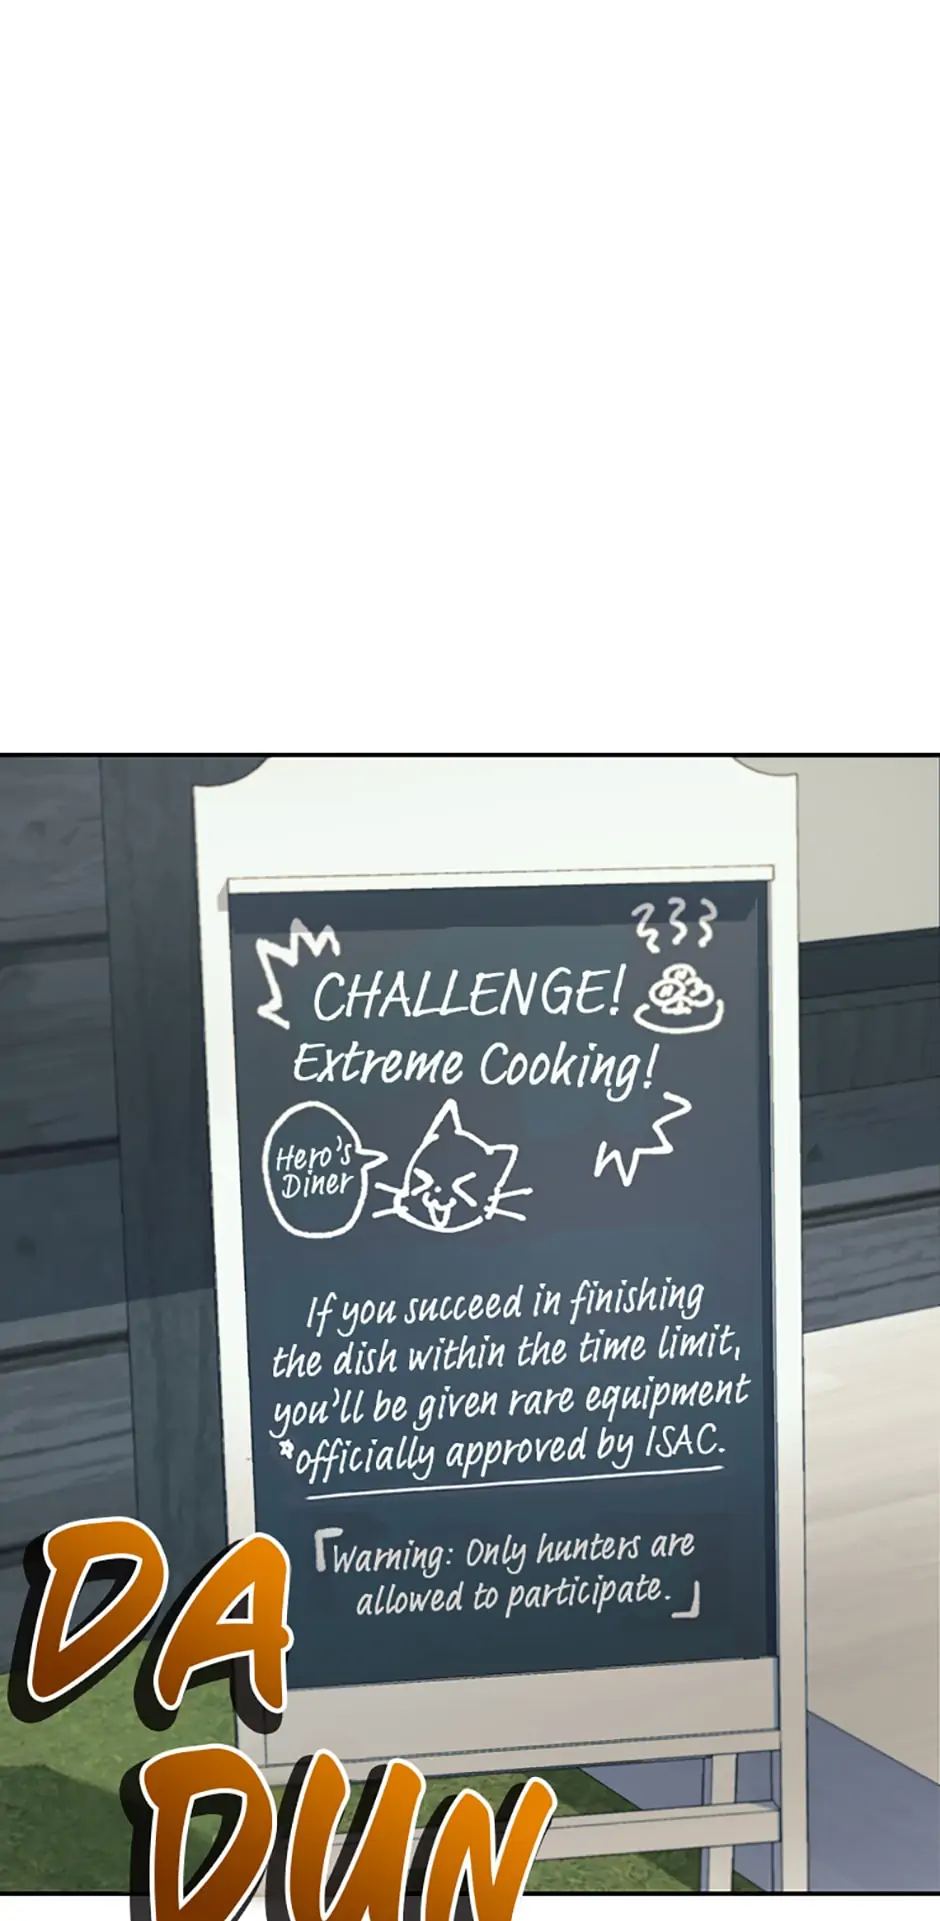 CHALLENGE!
Extreme Cooking!
Hero's
Diner
If you succeed in finishing
the dish within the time limit,
you'll be given rare equipment
*officially approved by ISAC.
「Warning: Only hunters are
allowed to participate.」
DA
DUN